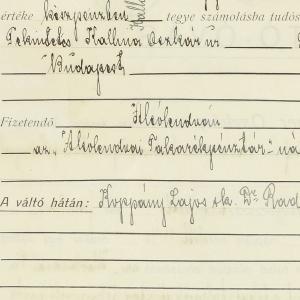 értéke készpénzben tegye számolásba tudós
Tekintetes Kallina Oszkár úr
Budapest
Fizetendő Alsólendván
az „Alsólendvai Takarékpénztár"-ná
A váltó hátán: Koppány Lajos sk. Dr Rad